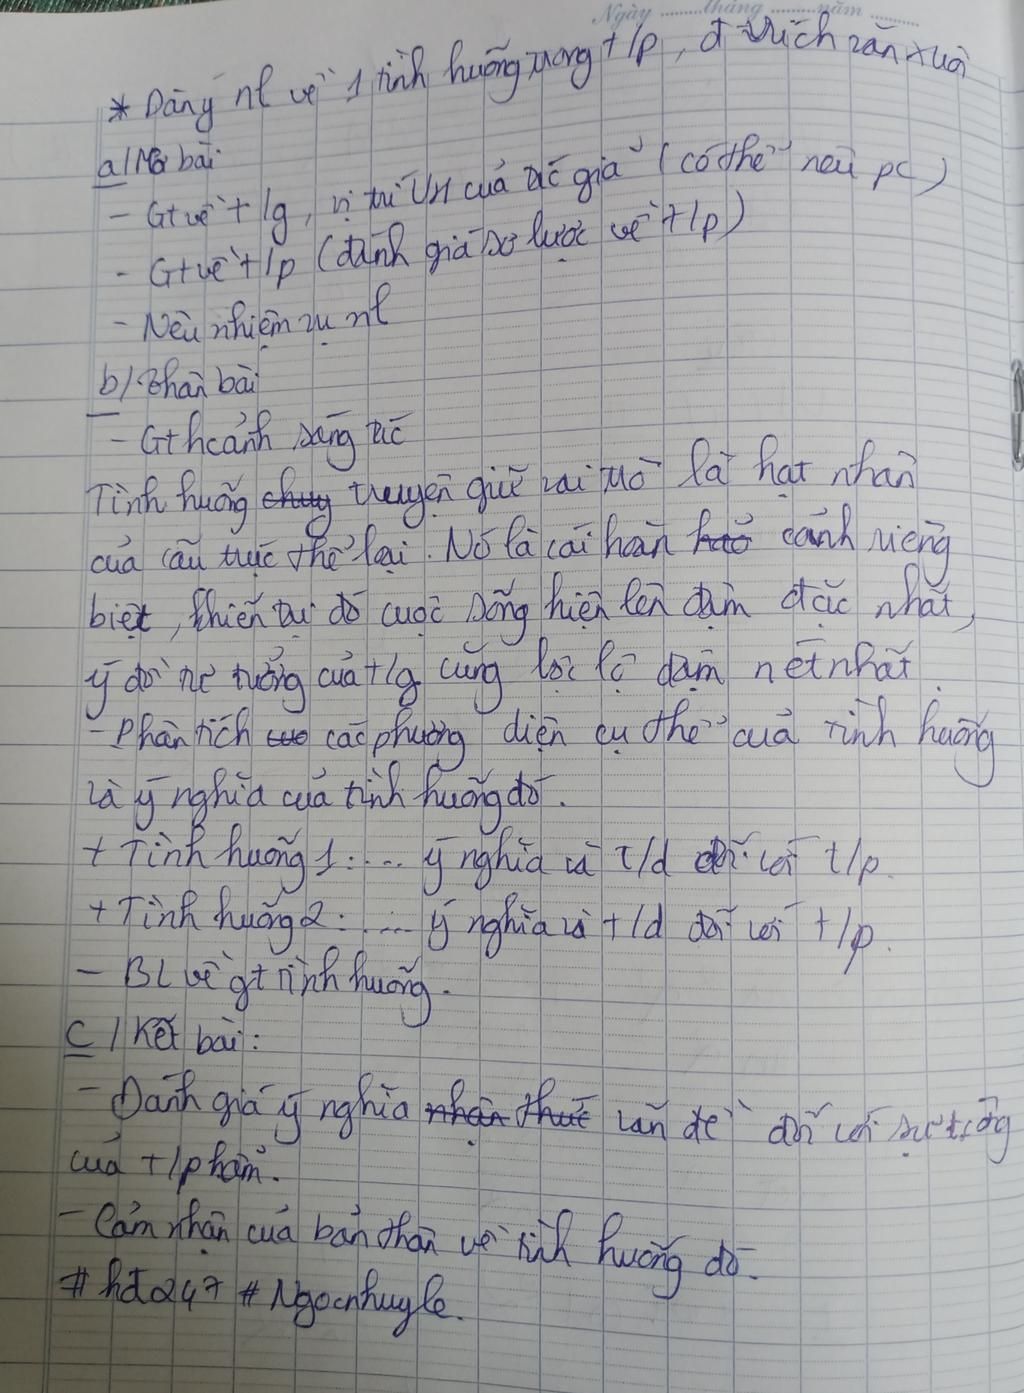 Ngày ........tháng ........năm ........
* Dàn ý nl về 1 tình huống trong t/p, đ trích văn xuôi
a/ Mở bài
- Gt về t/g, vị trí VH của tác giả (có thể nêu pc)
- Gt về t/p (đánh giá sơ lược về t/p)
- Nêu nhiệm vụ nl
b/ Thân bài
- Gt hcảnh sáng tác
Tình huống chuy truyện giữ vai trò là hạt nhân
của cấu trúc thể loại. Nó là cái hoàn hcả cảnh riêng
biệt, khiến tại đó cuộc sống hiện lên đậm đặc nhất,
ý đồ tư tưởng của t/g cũng lộc lộ đậm nét nhất.
- Phân tích các phương diện cụ thể của tình huống
và ý nghĩa của tình huống đó.
+ Tình huống 1: .... ý nghĩa và t/d đối với t/p.
+ Tình huống 2: .... ý nghĩa và t/d đối với t/p.
- BL về gt tình huống.
c/ Kết bài:
- Đánh giá ý nghĩa nhận thức vấn đề đối với sự t.công
của t/phẩm.
- Cảm nhận của bản thân về tình huống đó.
# hđ247 # Ngocnhuyle.